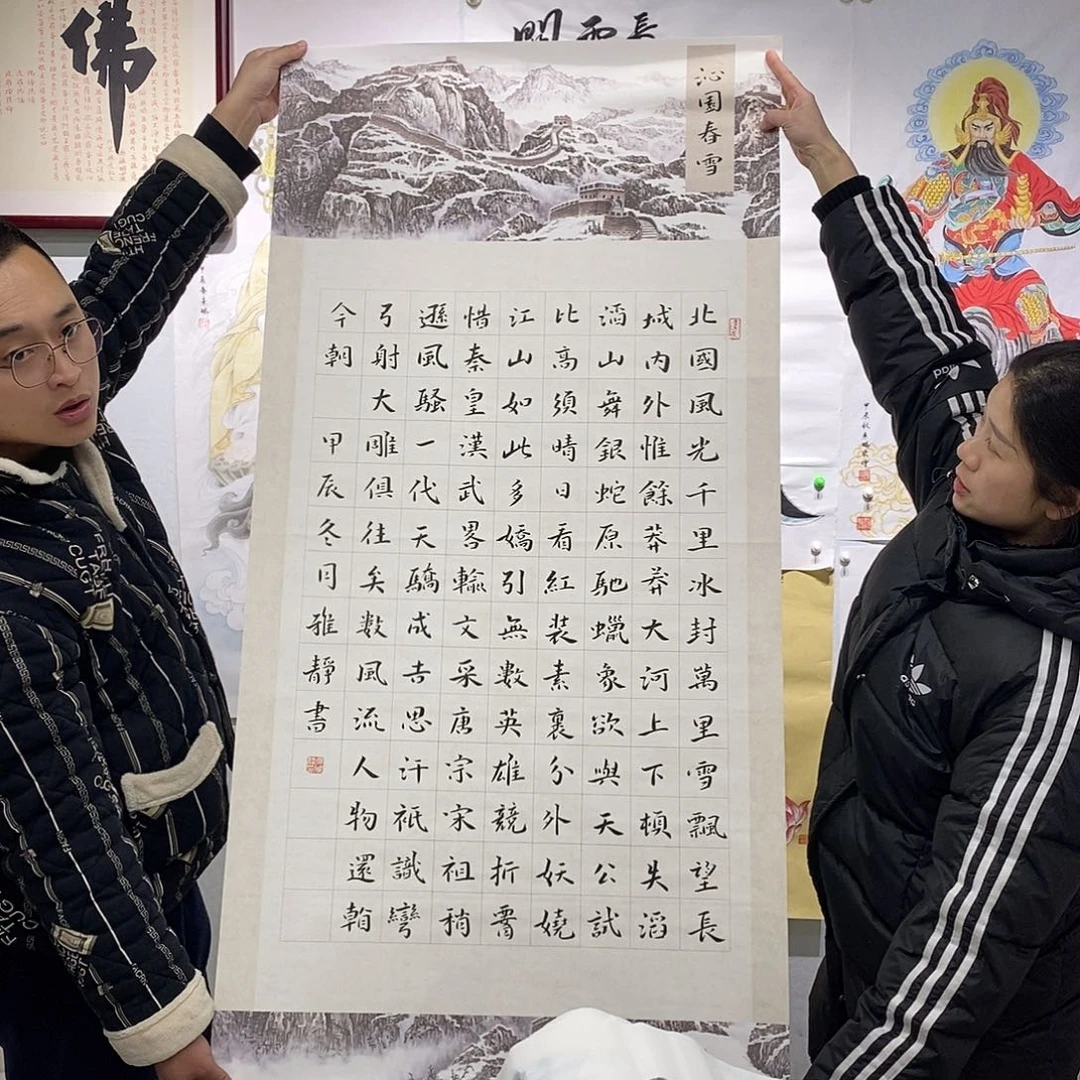 佛
長雲關
沁園春雪
北國風光千里冰封萬里雪飄望長
城内外惟餘莽莽大河上下頓失滔
滔山舞銀蛇原馳蠟象欲與天公試
比高須晴日看紅裝素裹分外妖嬈
江山如此多嬌引無數英雄競折腰
惜秦皇漢武畧輸文采唐宗宋祖稍
遜風騷一代天驕成吉思汗祇識彎
弓射大雕俱往矣數風流人物還看
今朝
甲辰冬月雅靜書